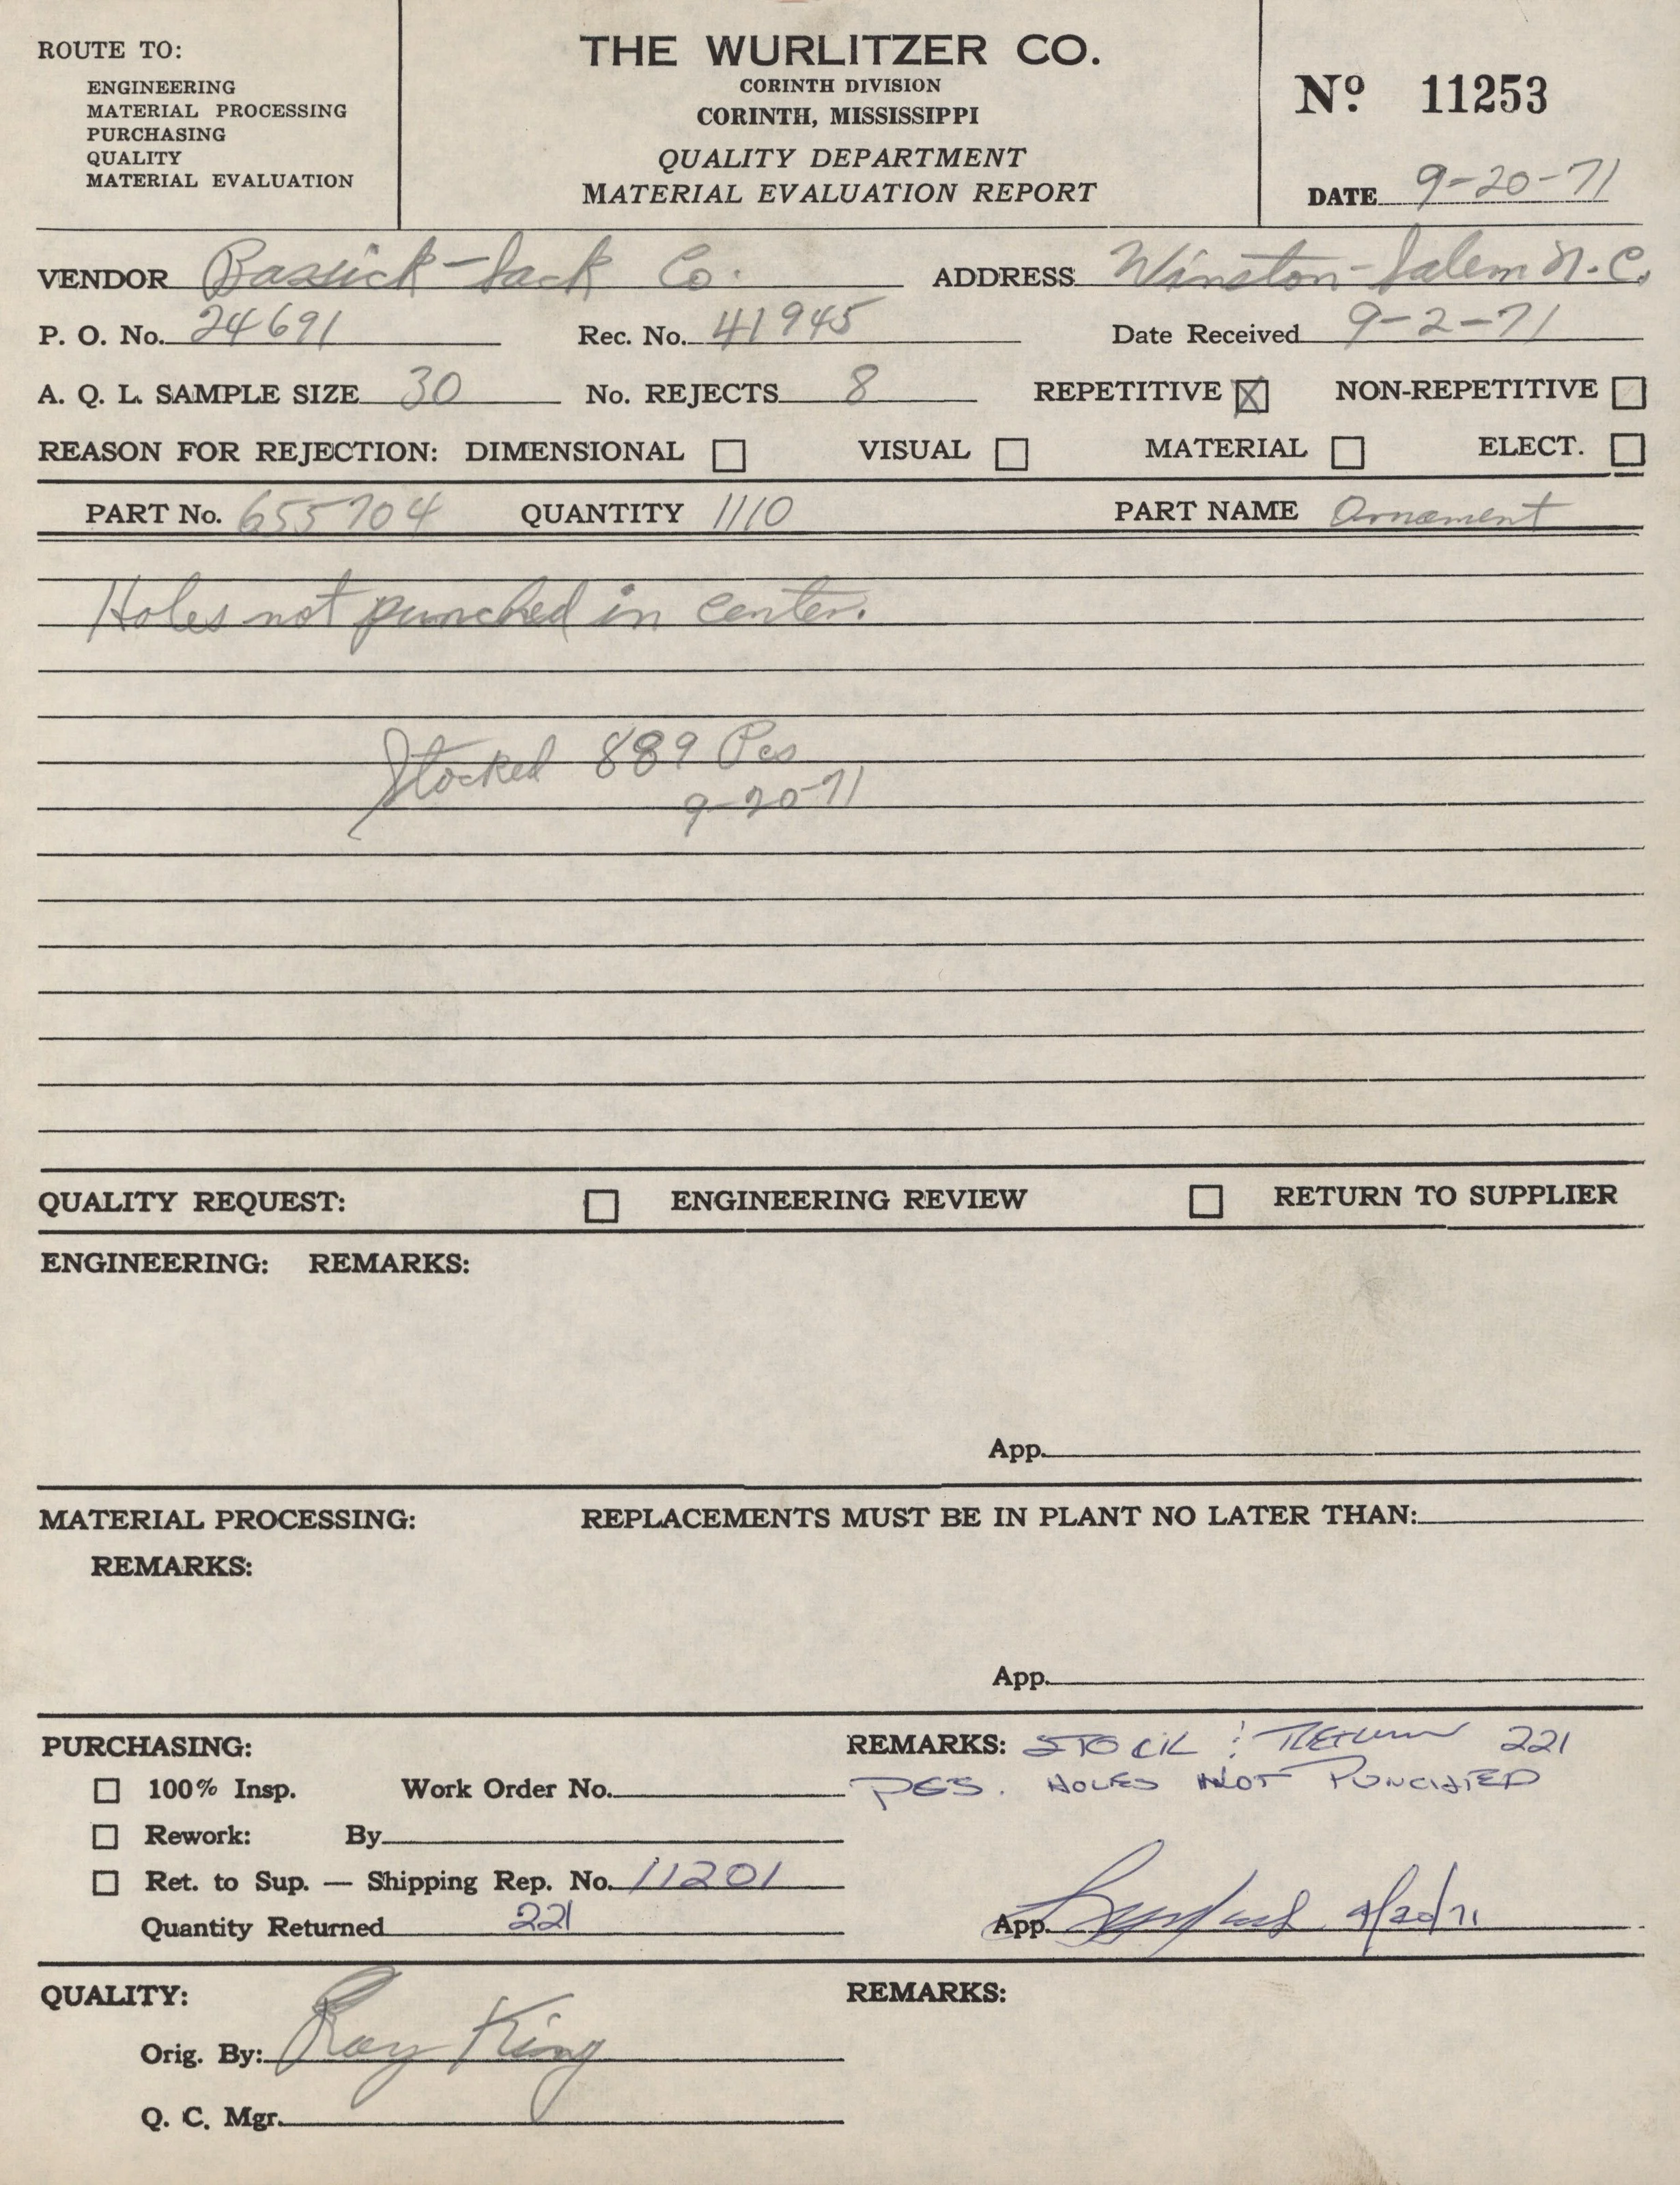 ROUTE TO:
ENGINEERING
MATERIAL PROCESSING
PURCHASING
QUALITY
MATERIAL EVALUATION
THE WURLITZER CO.
CORINTH DIVISION
CORINTH, MISSISSIPPI
QUALITY DEPARTMENT
MATERIAL EVALUATION REPORT
Nº 11253
DATE 9-20-71
VENDOR Bassick-Sack Co. ADDRESS Winston-Salem N.C.
P. O. No. 24691 Rec. No. 41945 Date Received 9-2-71
A. Q. L. SAMPLE SIZE 30 No. REJECTS 8 REPETITIVE X NON-REPETITIVE
REASON FOR REJECTION: DIMENSIONAL VISUAL MATERIAL ELECT.
PART No. 655704 QUANTITY 1110 PART NAME Ornament
Holes not punched in center.
Stocked 889 Pcs
9-20-71
QUALITY REQUEST: ENGINEERING REVIEW RETURN TO SUPPLIER
ENGINEERING: REMARKS:
App.
MATERIAL PROCESSING: REPLACEMENTS MUST BE IN PLANT NO LATER THAN:
REMARKS:
App.
PURCHASING: REMARKS: STOCK : RETURN 221
100% Insp. Work Order No. PCS. HOLES NOT PUNCHED
Rework: By
Ret. to Sup. — Shipping Rep. No. 11201
Quantity Returned 221 App. 9/20/71
QUALITY: REMARKS:
Orig. By: Ray King
Q. C. Mgr.